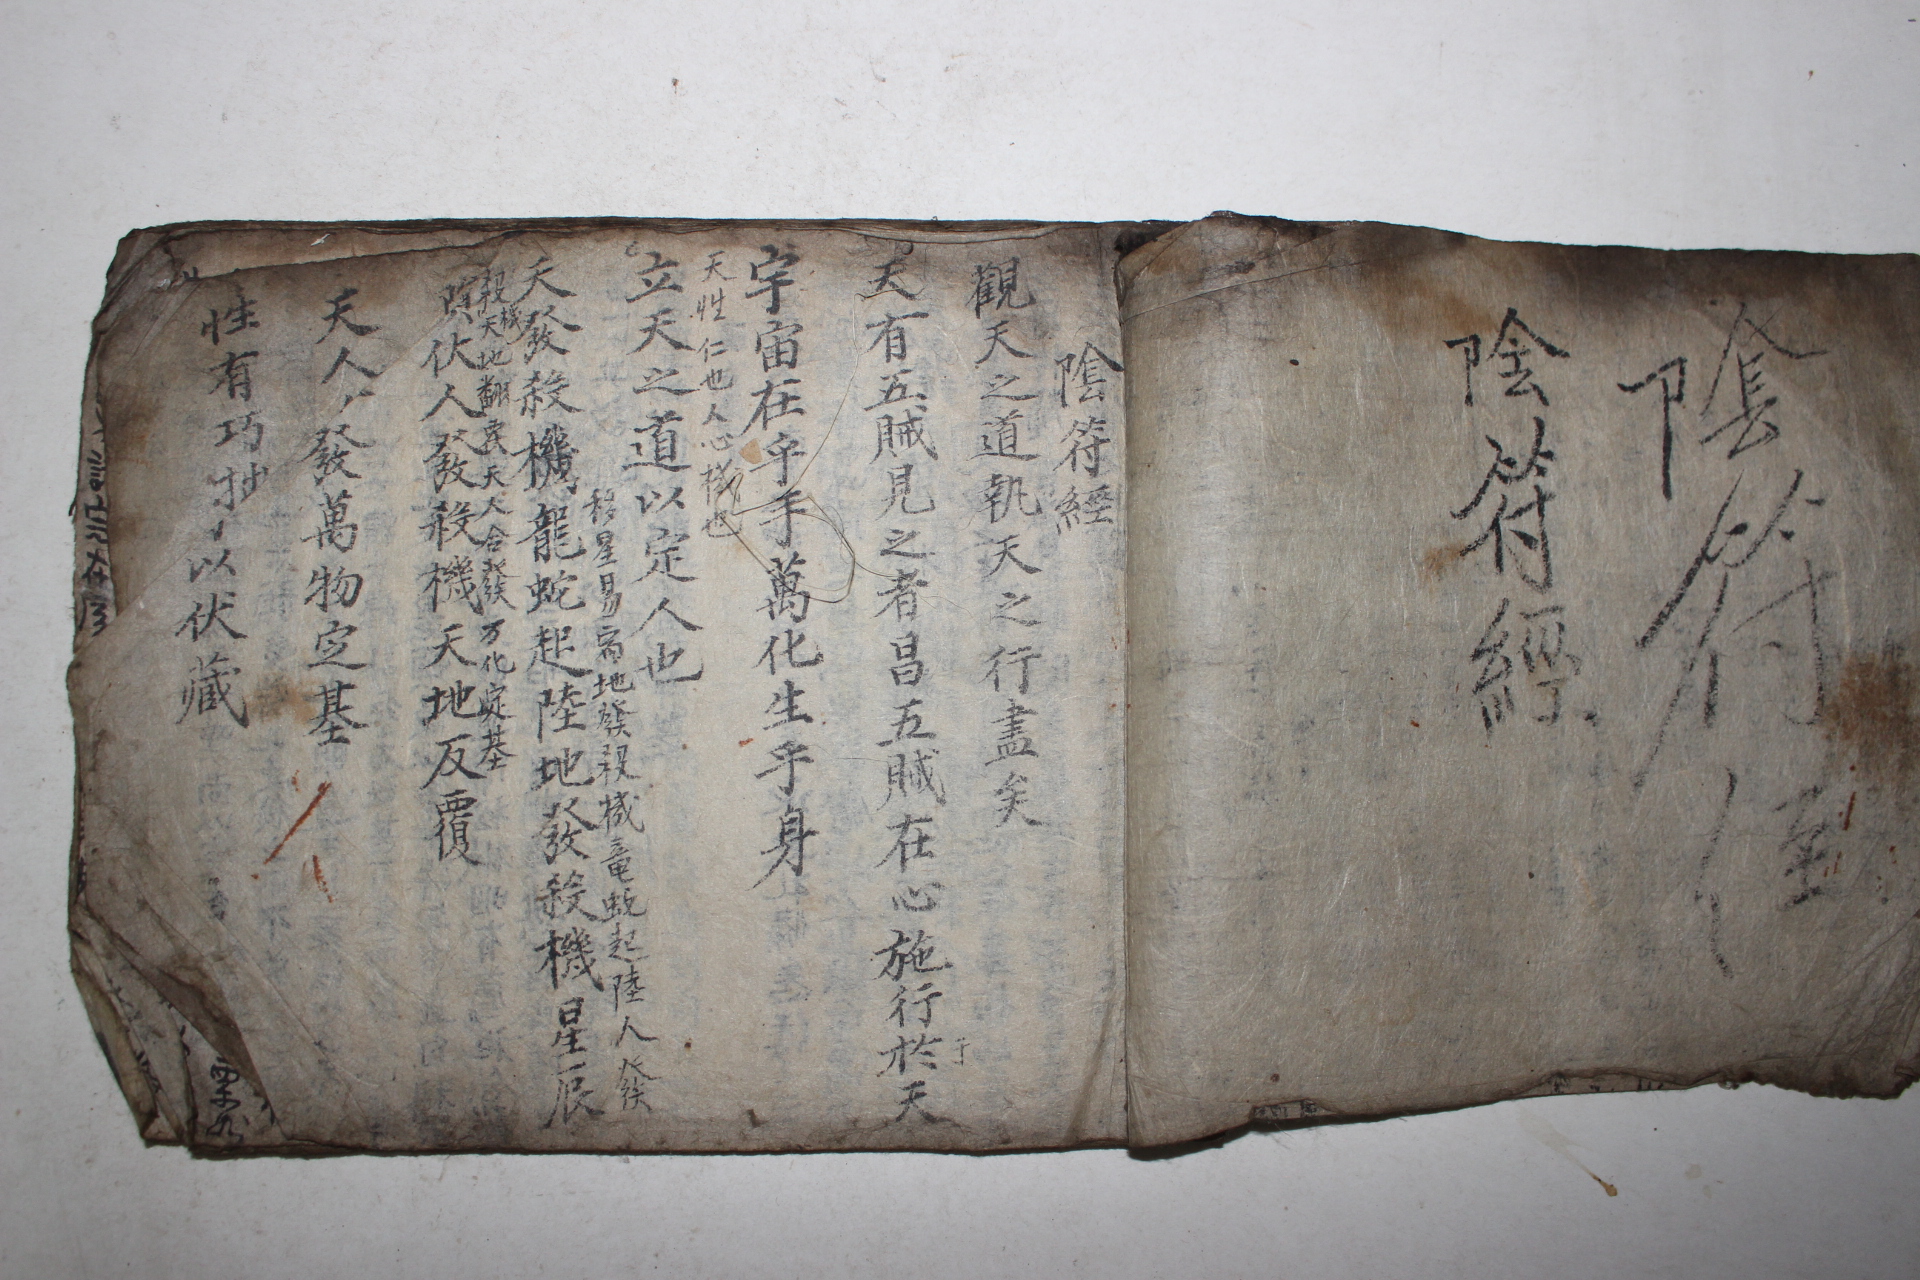 陰符經
陰符經
陰符經
觀天之道執天之行盡矣
天有五賊見之者昌五賊在心施行於天
于
宇宙在乎手萬化生乎身
天性仁也人心機也
立天之道以定人也
移星易宿地發殺機竜蛇起陸人發
天發殺機龍蛇起陸地發殺機星辰
殺機天地翻覆天人合發万化定基
隕伏人發殺機天地反覆
天人〻發萬物定基
性有巧抄〻以伏藏